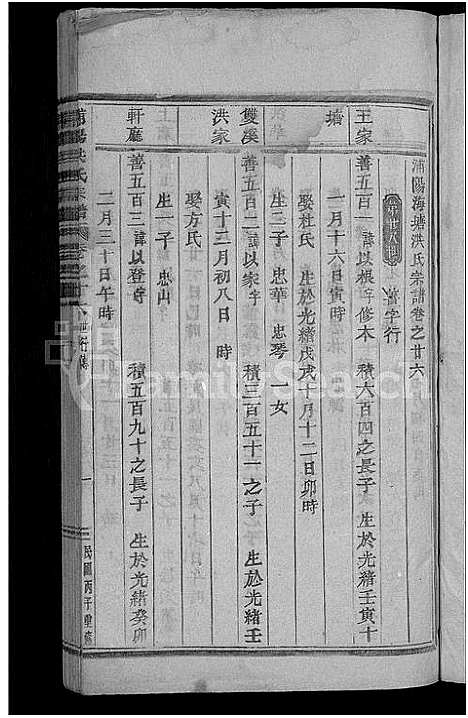 浦陽海塘洪氏宗譜卷之廿六
善字行
王家塘
善五百一諱以根字修木 積大百四之長子 生於光緒壬寅十
一月十六日寅時
娶杜氏 生於光緒戊戌十月十二日卯時
生二子 忠華 忠琴 一女
雙溪洪家
善五百二諱以家字 積三百五十一之子 生於光緒壬
寅十二月初八日 時
娶方氏
生一子 忠山
軒廳
善五百三諱以登字 積五百九十之長子 生於光緒癸卯
二月三十日午時
浦陽洪氏宗譜 卷之廿六 行傳 一
民國丙子重修
FamilySearch